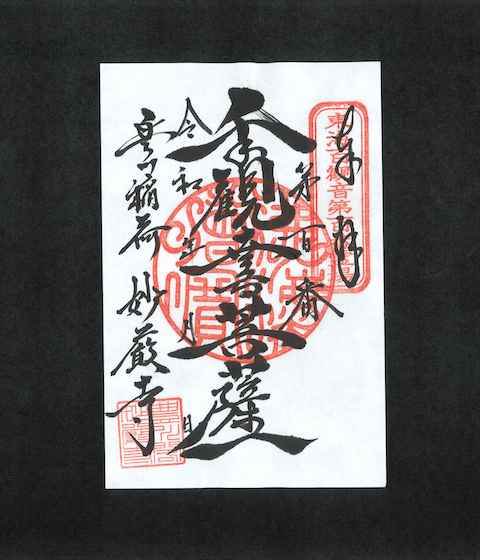 奉拝
東海百観音第百
第百番
千手觀音菩薩
令和 年 月 日
豊川稲荷 妙厳寺